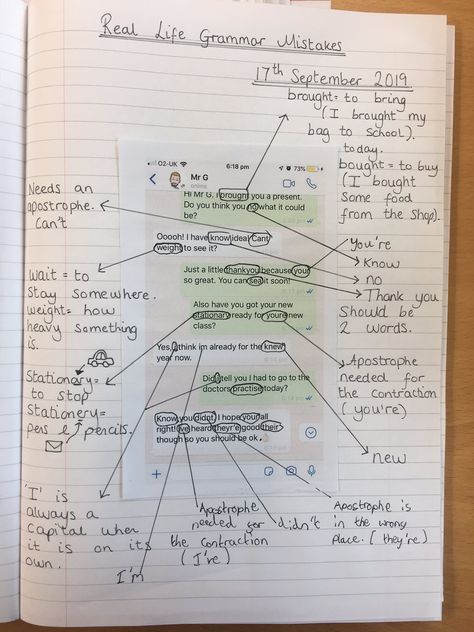 Real Life Grammar Mistakes
17th September 2019
brought= to bring
(I brought my
bag to school).
today.
bought= to buy
(I bought
some food
from the Shop).
Needs an
apostrophe.
Can't
Wait = to
stay somewhere.
weight= how
heavy something
is.
Stationary=
to stop
Stationery=
pens & pencils.
'I' is
always a
capital when
it is on its
own.
O2-UK
6:18 pm
73%
Mr G
online
Hi Mr G. I brought you a present.
Do you think you no what it could
be?
Ooooh! I have know idea! Cant
weight to see it?
Just a little thankyou because your
so great. You can sea it soon!
Also have you got your new
stationary ready for youre new
class?
Yes, i think im already for the knew
year now.
Did i tell you I had to go to the
doctors practise today?
Know you did'nt. I hope your all
right! Ive heard they're good their
though so you should be ok.
You're
Know
no
Thank you
should be
2 words.
Apostrophe
needed for
the contraction
(you're)
new
I'm
Apostrophe
needed for
the contraction
(I've)
didn't
Apostrophe is
in the wrong
place. (they're)